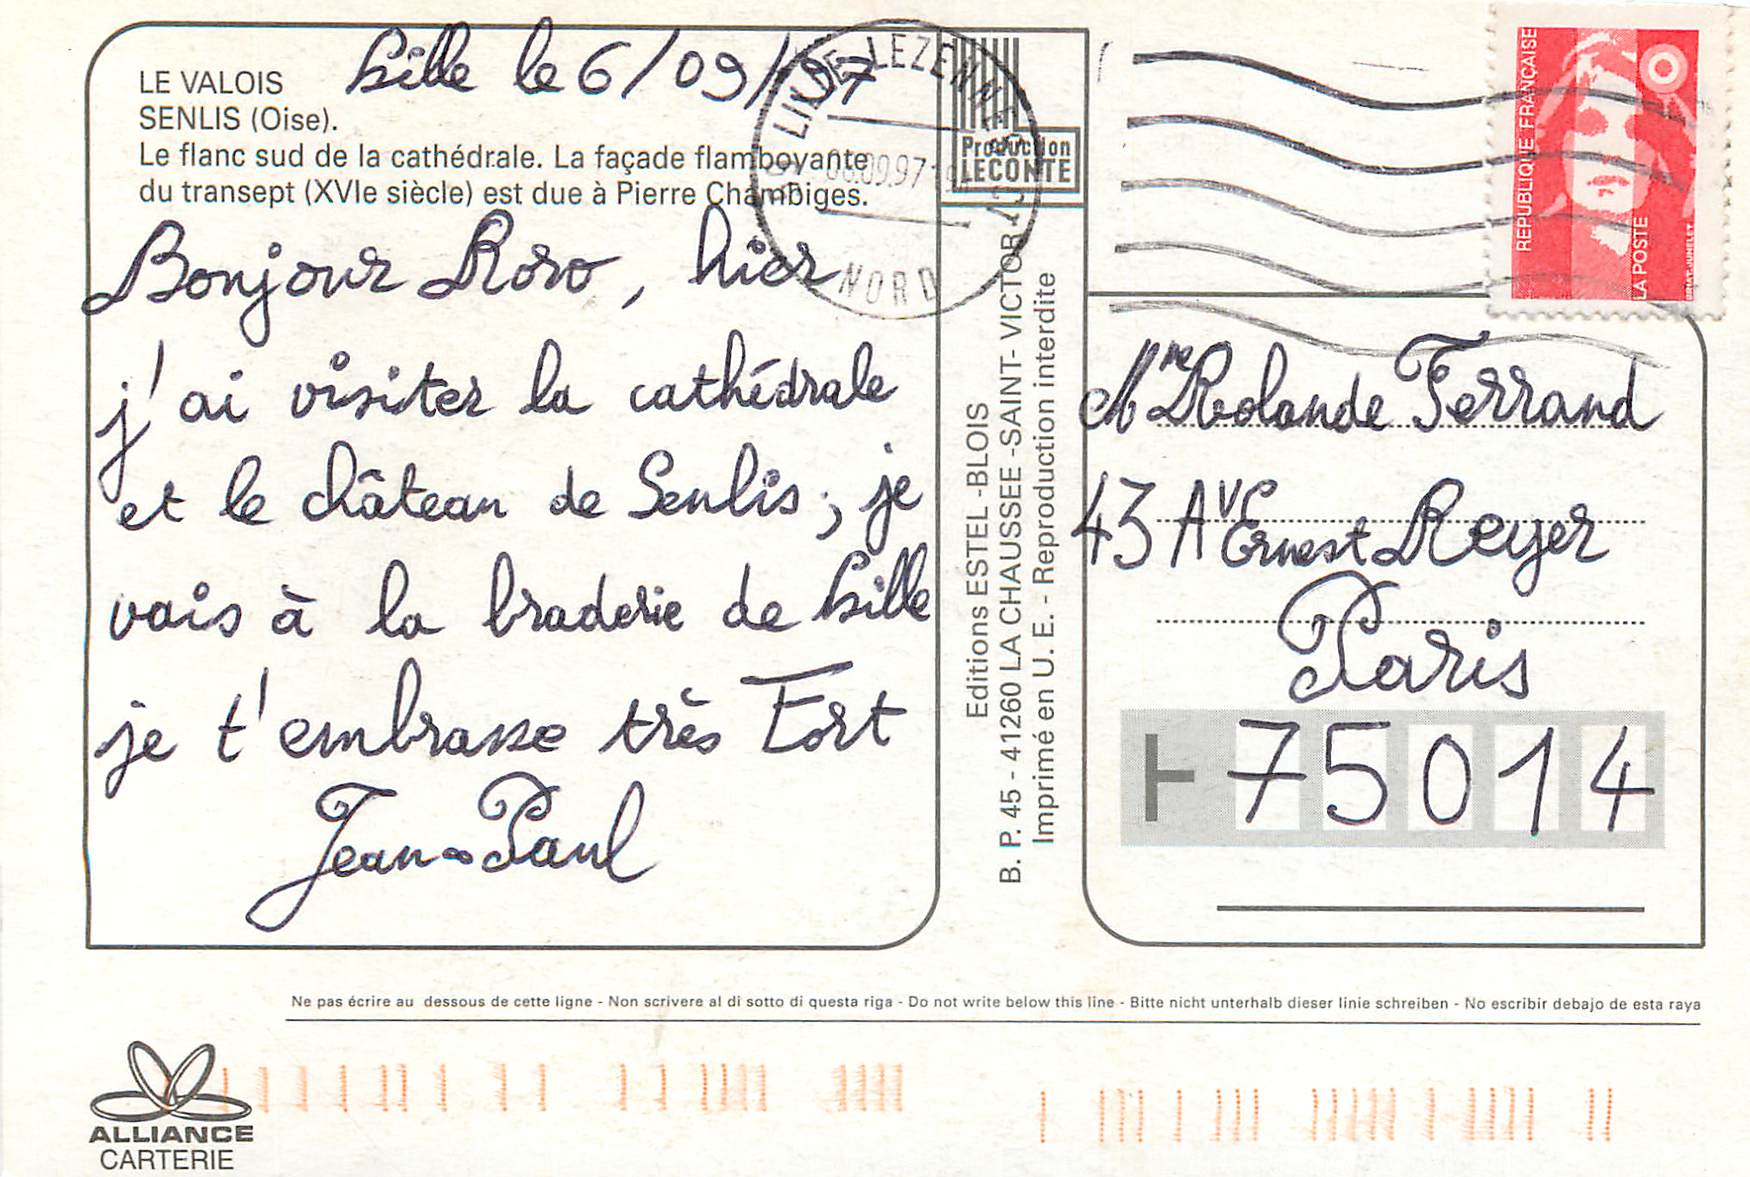 LE VALOIS
SENLIS (Oise).
Le flanc sud de la cathédrale. La façade flamboyante
du transept (XVIe siècle) est due à Pierre Chambiges.
Lille le 6/09/97
Bonjour Roro, hier
j'ai visiter la cathédrale
et le château de Senlis, je
vais à la braderie de Lille
je t'embrasse très Fort
Jean-Paul
LILLE-LEZENNES
06.09.97
NORD
Production
LECONTE
Editions ESTEL-BLOIS
B. P. 45 - 41260 LA CHAUSSEE -SAINT- VICTOR
Imprimé en U. E. - Reproduction interdite
REPUBLIQUE FRANÇAISE
LA POSTE
BRIAT-JUMELET
Mme Rolande Ferrand
43 Ave Ernest Reyer
Paris
75014
Ne pas écrire au dessous de cette ligne - Non scrivere al di sotto di questa riga - Do not write below this line - Bitte nicht unterhalb dieser linie schreiben - No escribir debajo de esta raya
ALLIANCE
CARTERIE